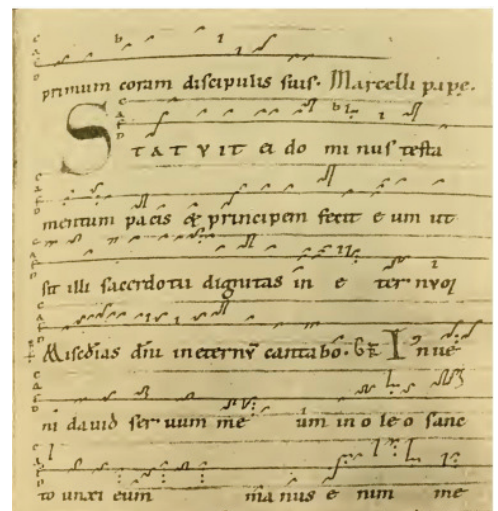 primum coram discipulis suis. Marcelli pape.
STATVIT ei do mi nus testa
mentum pacis & principem fecit e um ut
sit illi sacerdotii dignitas in e ter
Misedias dni in eternv cantabo. I nue
ni david ser uum me um in o le o sanc
to unxi eum ma nus e nim me